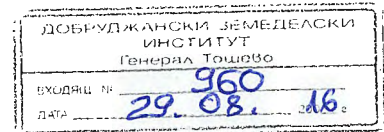 ДОБРУДЖАНСКИ ЗЕМЕДЕЛСКИ
ИНСТИТУТ
Генерал Тошево
ВХОДЯЩ № 960
ДАТА 29. 08. 2016 г.